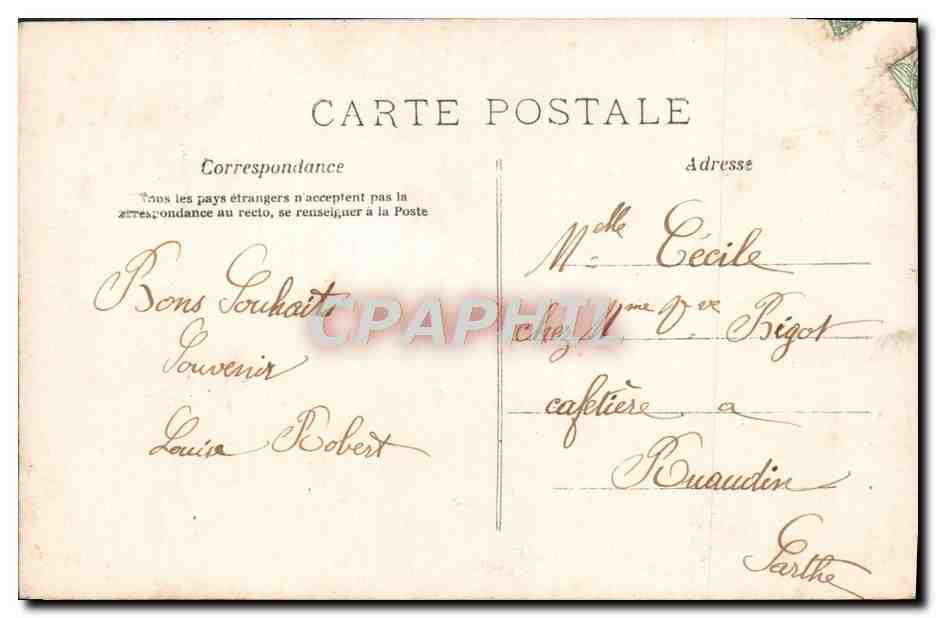 CARTE POSTALE
Correspondance
Tous les pays étrangers n'acceptent pas la
correspondance au recto, se renseigner à la Poste
Bons Souhaits
Souvenir
Louise Robert
Adresse
Mdelle Cécile
chez Mme Vve Bigot
cafetière a
Ruaudin
Sarthe
CPAPHIL